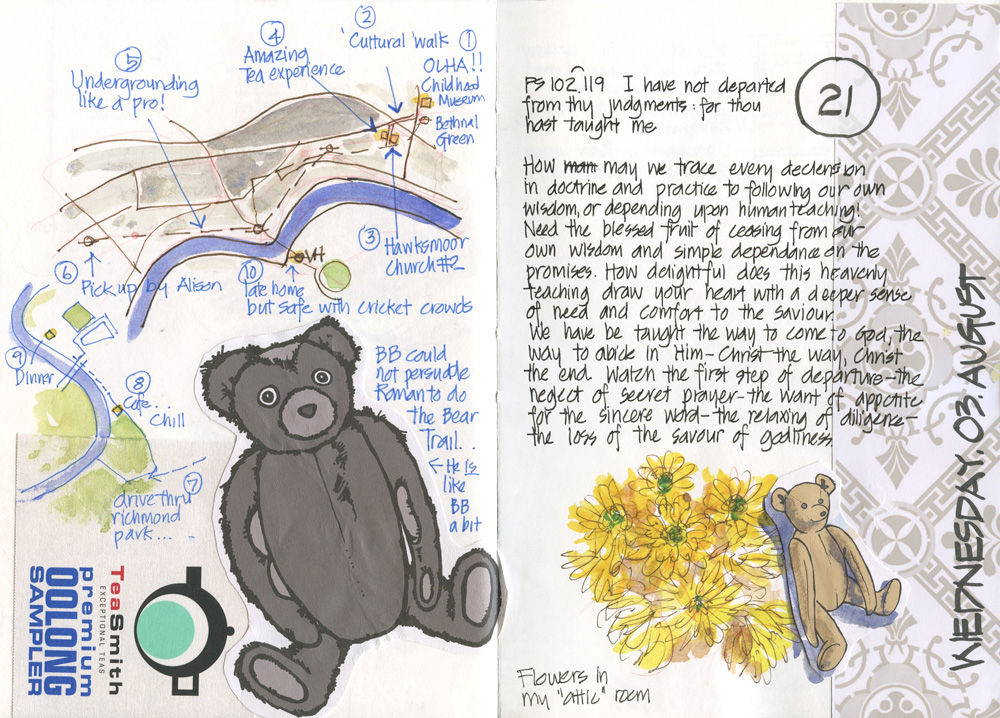 ②
'Cultural' walk
①
OLHA!!
Childhood
Museum
Bethnal
Green
④
Amazing
Tea experience
⑤
Undergrounding
like a pro!
③
Hawksmoor
Church #2
VH
⑥
Pick up by Alison
⑩
Late home
but safe with cricket crowds
⑨
Dinner
⑧
Cafe...
Chill
⑦
drive thru
richmond
park...
BB could
not persuade
Roman to do
the Bear
Trail..
← He is
like
BB
a bit
TeaSmith
EXCEPTIONAL TEAS
premium
OOLONG
SAMPLER
Ps 102, 119 I have not departed
from thy judgments: for thou
hast taught me
21
How may we trace every declension
in doctrine and practice to following our own
wisdom, or depending upon human teaching!
Need the blessed fruit of ceasing from our
own wisdom and simple dependance on the
promises. How delightful does this heavenly
teaching draw your heart with a deeper sense
of need and comfort to the saviour.
We have be taught the way to come to God, the
way to abide in Him - Christ the way, Christ
the end. Watch the first step of departure - the
neglect of secret prayer - the want of appetite
for the sincere word - the relaxing of diligence -
the loss of the savour of godliness
WEDNESDAY.03.AUGUST
Flowers in
my "attic" room